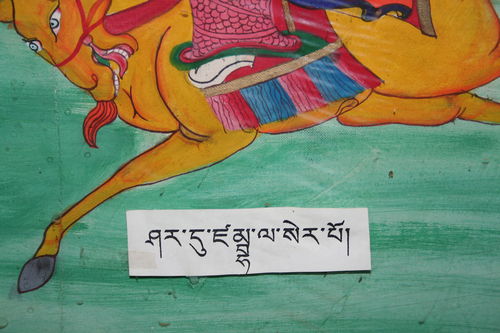 ཤར་དུ་ཛམྦྷ་ལ་སེར་པོ།